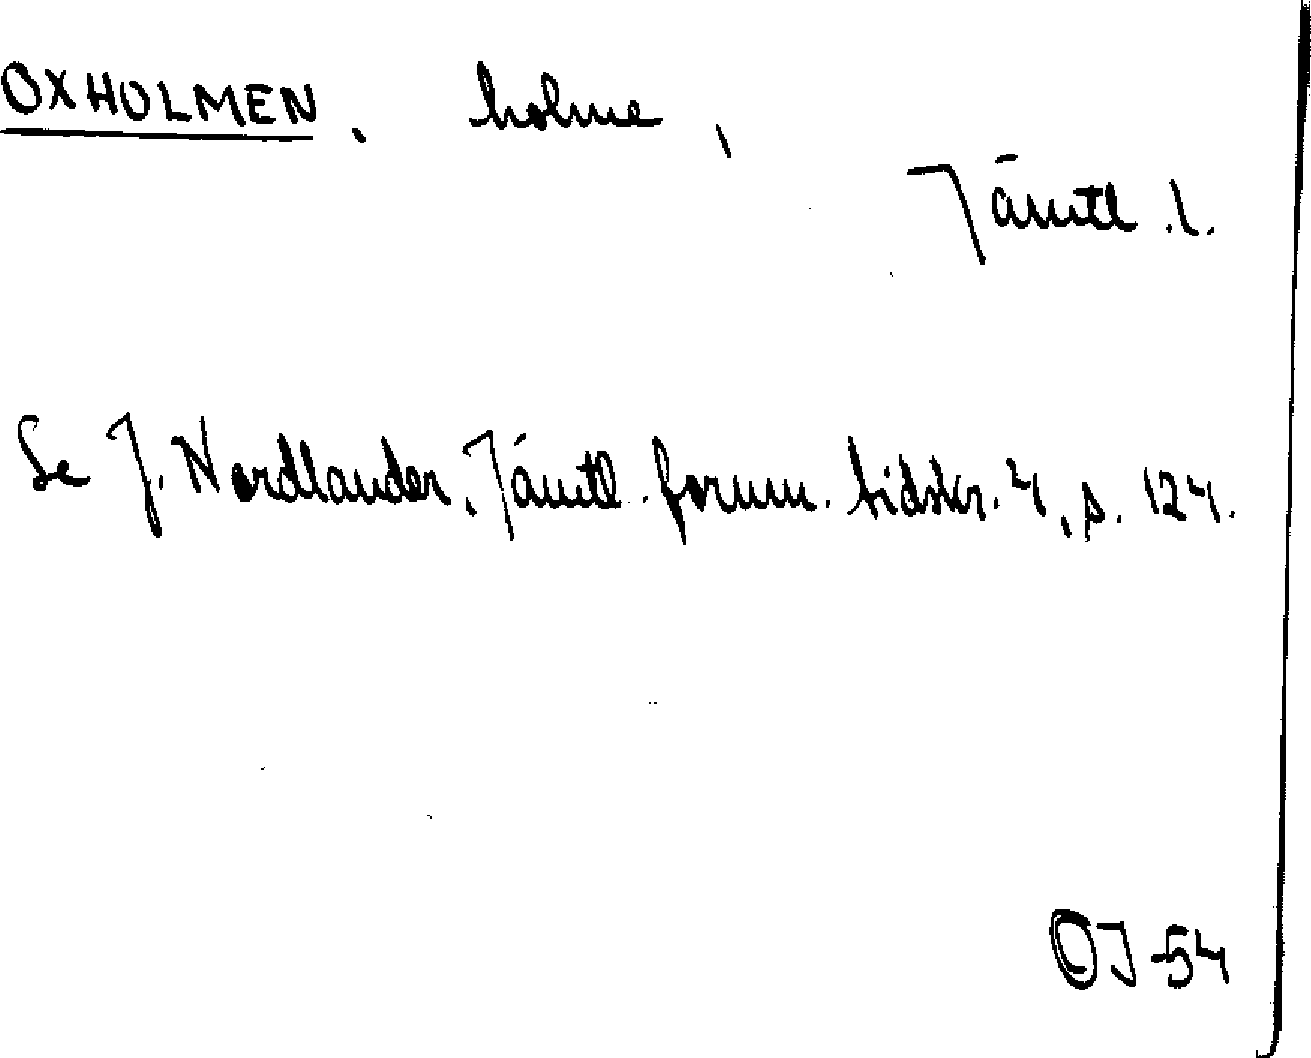 OXHOLMEN, holme,
Jämtl. l.
Se J. Nordlander, Jämtl. fornm. tidskr. 4, s. 124.
OJ -54